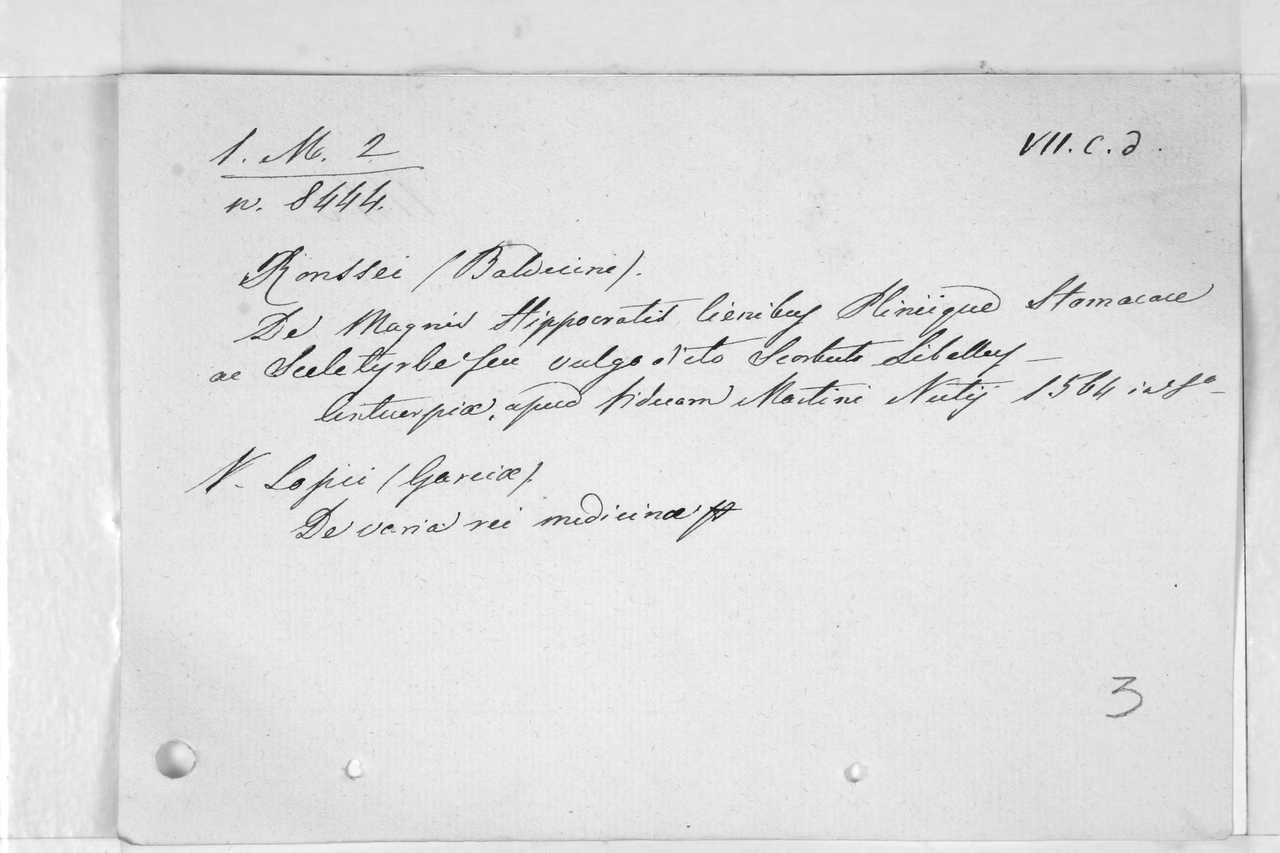 1. M. 2
n. 8444.
VII. c. d.
Ronssei (Balduine).
De Magnis Hippocratis lienibus Pliniique Stomacace
ac Sceletyrbe seu vulgo dicto Scorbuto Libellus —
Antuerpiæ, apud Viduam Martini Nutij 1564 in 8º —
V. Lopii (Garciæ).
De varia rei medicinæ
3